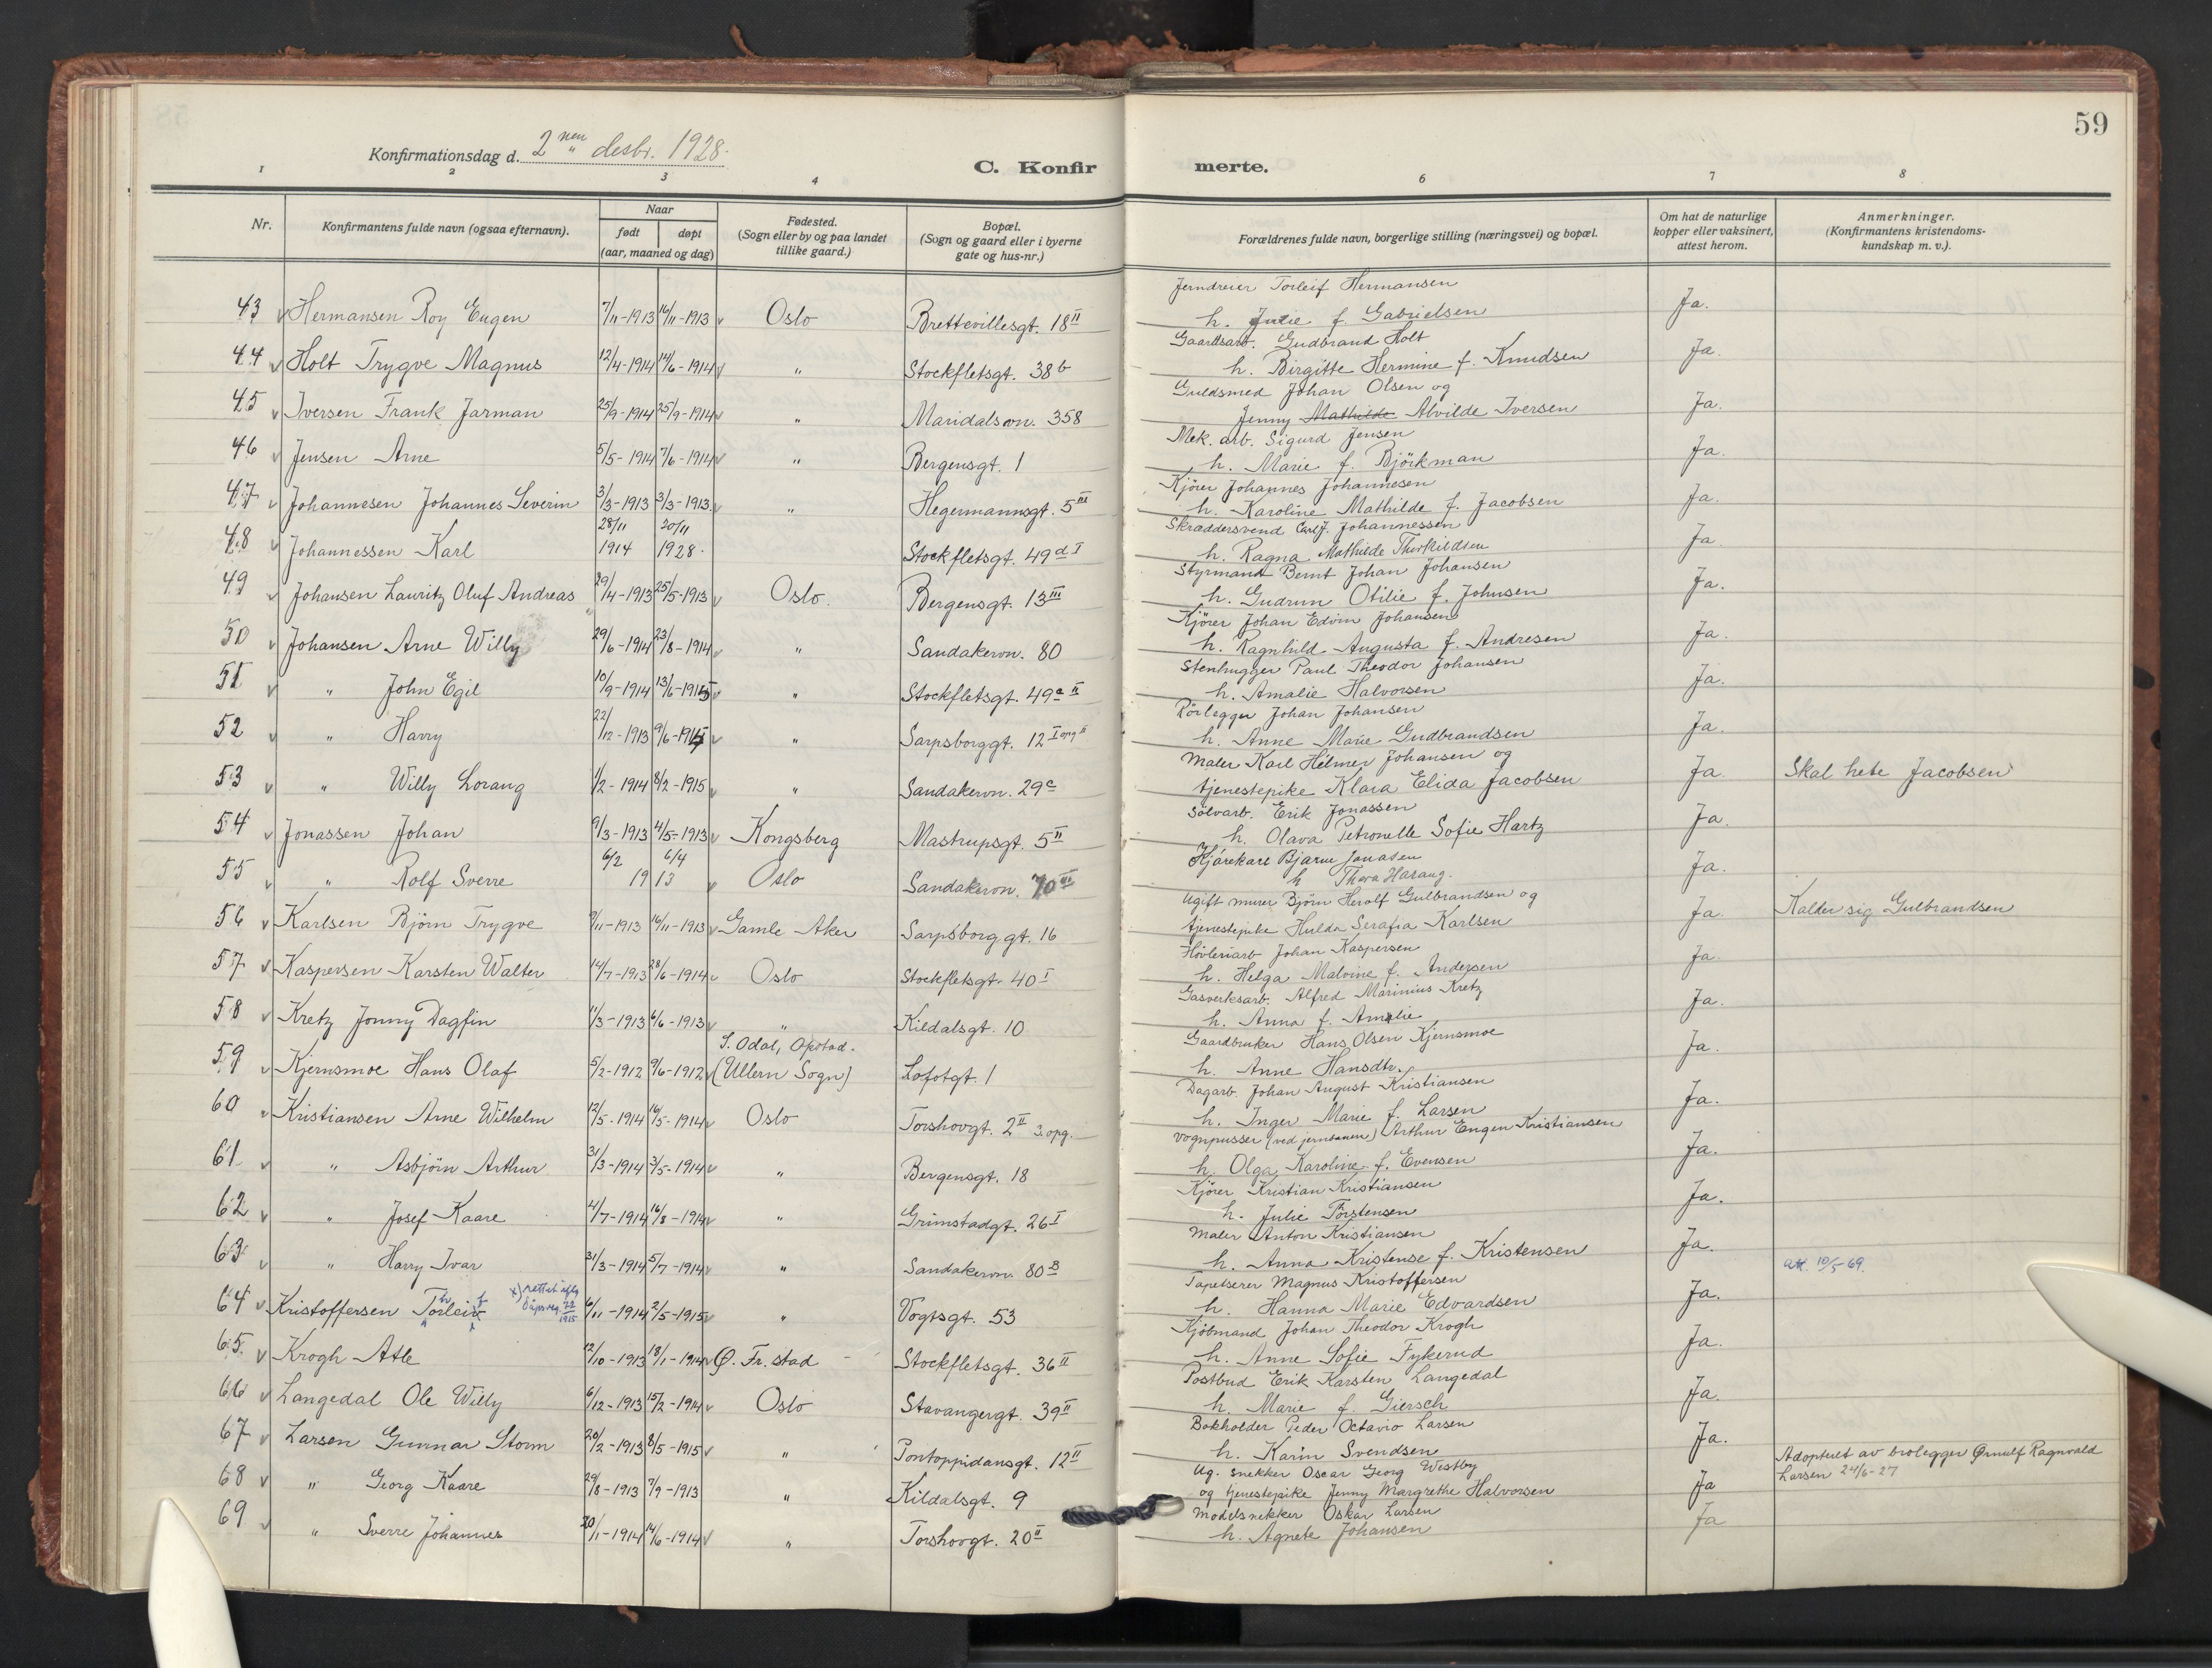 59
Konfirmationsdag d. 2nen desbr. 1928.
C. Konfirmerte.
1 2 3 4 6 7 8
Nr. Konfirmantens fulde navn (ogsaa efternavn). Naar født døpt (aar, maaned og dag) Fødested. (Sogn eller by og paa landet tillike gaard.) Bopæl. (Sogn og gaard eller i byerne gate og hus-nr.) Forældrenes fulde navn, borgerlige stilling (næringsvei) og bopæl. Om hat de naturlige kopper eller vaksinert, attest herom. Anmerkninger. (Konfirmantens kristendomskundskap m. v.).
43 Hermansen Roy Eugen 7/11-1913 16/11-1913 Oslo Brettevillesgt. 18 II Jerndreier Torleif Hermansen Ja.
h. Julie f. Gabrielsen
44 Holt Trygve Magnus 12/4-1914 14/6-1914 " Stockfletsgt. 38b Gaardsarb. Gudbrand Holt Ja.
h. Birgitte Hermine f. Knudsen
45 Iversen Frank Jarman 25/9-1914 25/9-1914 " Maridalsvn. 358 Guldsmed Johan Olsen og Ja.
Jenny Mathilde Alvilde Iversen
46 Jensen Arne 5/5-1914 7/6-1914 " Bergensgt. 1 Mek. arb. Sigurd Jensen Ja.
h. Marie f. Björkman
47 Johannesen Johannes Severin 3/3-1913 3/3-1913 " Hegermannsgt. 5 III Kjører Johannes Johannesen Ja.
h. Karoline Mathilde f. Jacobsen
48 Johannessen Karl 28/11 1914 20/11 1928. Stockfletsgt. 49d I Skræddersvend Carl J. Johannessen Ja.
h. Ragna Mathilde Therkildsen
49 Johansen Lauritz Oluf Andreas 29/4-1913 25/5-1913 Oslo. Bergensgt. 13 III Styrmand Bernt Johan Johansen Ja.
h. Gudrun Otilie f. Johnsen
50 Johansen Arne Willy 29/6-1914 23/8-1914 " Sandakervn. 80 Kjører Johan Edvin Johansen Ja.
h. Ragnhild Augusta f. Andresen
51 " John Egil 10/9-1914 13/6-1915 " Stockfletsgt. 49a II Stenhugger Paul Theodor Johansen Ja.
h. Amalie Halvorsen
52 " Harry 22/12-1913 9/6-191 " Sarpsborggt. 12 I opg II Rörlegger Johan Johansen Ja.
h. Anne Marie Gudbrandsen
53 " Willy Lorang 1/2-1914 8/2-1915 " Sandakervn. 29c Maler Karl Hilmer Johansen og Ja. Skal hete Jacobsen
tjenestepike Klara Elida Jacobsen
54 Jonassen Johan 9/3-1913 4/5-1913 Kongsberg Mastrupsgt. 5 II Sölvarb. Erik Jonassen Ja.
h. Olava Petronelle Sofie Hartz
55 " Rolf Sverre 6/2 6/4 1913 Oslo Sandakervn. 70 III Kjørekar Bjarne Jonasen Ja.
h Thora Haraug.
56 Karlsen Björn Trygve 9/11-1913 16/11-1913 Gamle Aker Sarpsborg gt. 16 Ugift murer Björn Herolf Gulbrandsen og Ja. Kalder sig Gulbrandsen
tjenestepike Hulda Serafia Karlsen
57 Kaspersen Karsten Walter 14/7-1913 28/6-1914 Oslo Stockfletsgt. 40 I Hövleriarb Johan Kaspersen Ja.
h. Helga Malvine f. Andersen
58 Kretz Jonny Dagfin 11/3-1913 6/6-1913 " Kildalsgt. 10 Gasverksarb. Alfred Marinius Kretz Ja.
h. Anna f. Amalie
59 Kjernsmoe Hans Olaf 5/2-1912 9/6-1912 S. Odal, Opstad. (Ullern Sogn) Lofotgt. 1 Gaardbruker Hans Olsen Kjernsmoe Ja.
h. Anne Hansdtr.
60 Kristiansen Arne Wilhelm 12/5-1914 16/5-1914 Oslo Torshovgt. 2 II 3. opg. Dagarb. Johan August Kristiansen Ja.
h. Inger Marie f. Larsen
61 " Asbjörn Arthur 31/3-1914 3/5-1914 " Bergensgt. 18 Vognpusser (ved jernbanen) Arthur Eugen Kristiansen Ja.
h. Olga Karoline f. Evensen
62 " Josef Kaare 4/7-1914 16/8-1914 " Grimstadgt. 26 I Kjører Kristian Kristiansen Ja.
h. Julie Torstensen
63 " Harry Ivar 31/3-1914 5/7-1914 " Sandakervn. 80 B Maler Anton Kristiansen Ja.
h. Anna Kristense f. Kristensen
att. 10/5-69.
64 Kristoffersen Torleiv x) rettet iflg dåpsreg. 22/1915 6/11-1914 2/5-1915 " Vogtsgt. 53 Tapetserer Magnus Kristoffersen Ja.
h. Hanna Marie Edvardsen
65 Krogh Atle 12/10-1913 18/1-1914 Ø. Fr. stad Stockfletsgt. 36 II Kjöbmand Johan Theodor Krogh Ja.
h. Anne Sofie Fykerud
66 Langedal Ole Willy 6/12-1913 15/2-1914 Oslo Stavangergt. 39 II Postbud Erik Karsten Langedal Ja.
h. Marie f. Giersch
67 Larsen Gunnar Storm 20/2-1913 8/5-1915 " Pontoppidansgt. 12 II Bokholder Peder Octavio Larsen Ja.
h. Karin Svendsen
68 " Georg Kaare 29/8-1913 7/9-1913 " Kildalsgt. 9 Ug. snekker Oscar Georg Westby Ja Adoptert av brolegger Ørnulf Ragnvald
og tjenestepike Jenny Margrethe Halvorsen Larsen 24/6-27
69 " Sverre Johannes 20/1-1914 14/6-1914 " Torshovgt. 20 II Modelsnekker Oskar Larsen Ja
h. Agnete Johansen